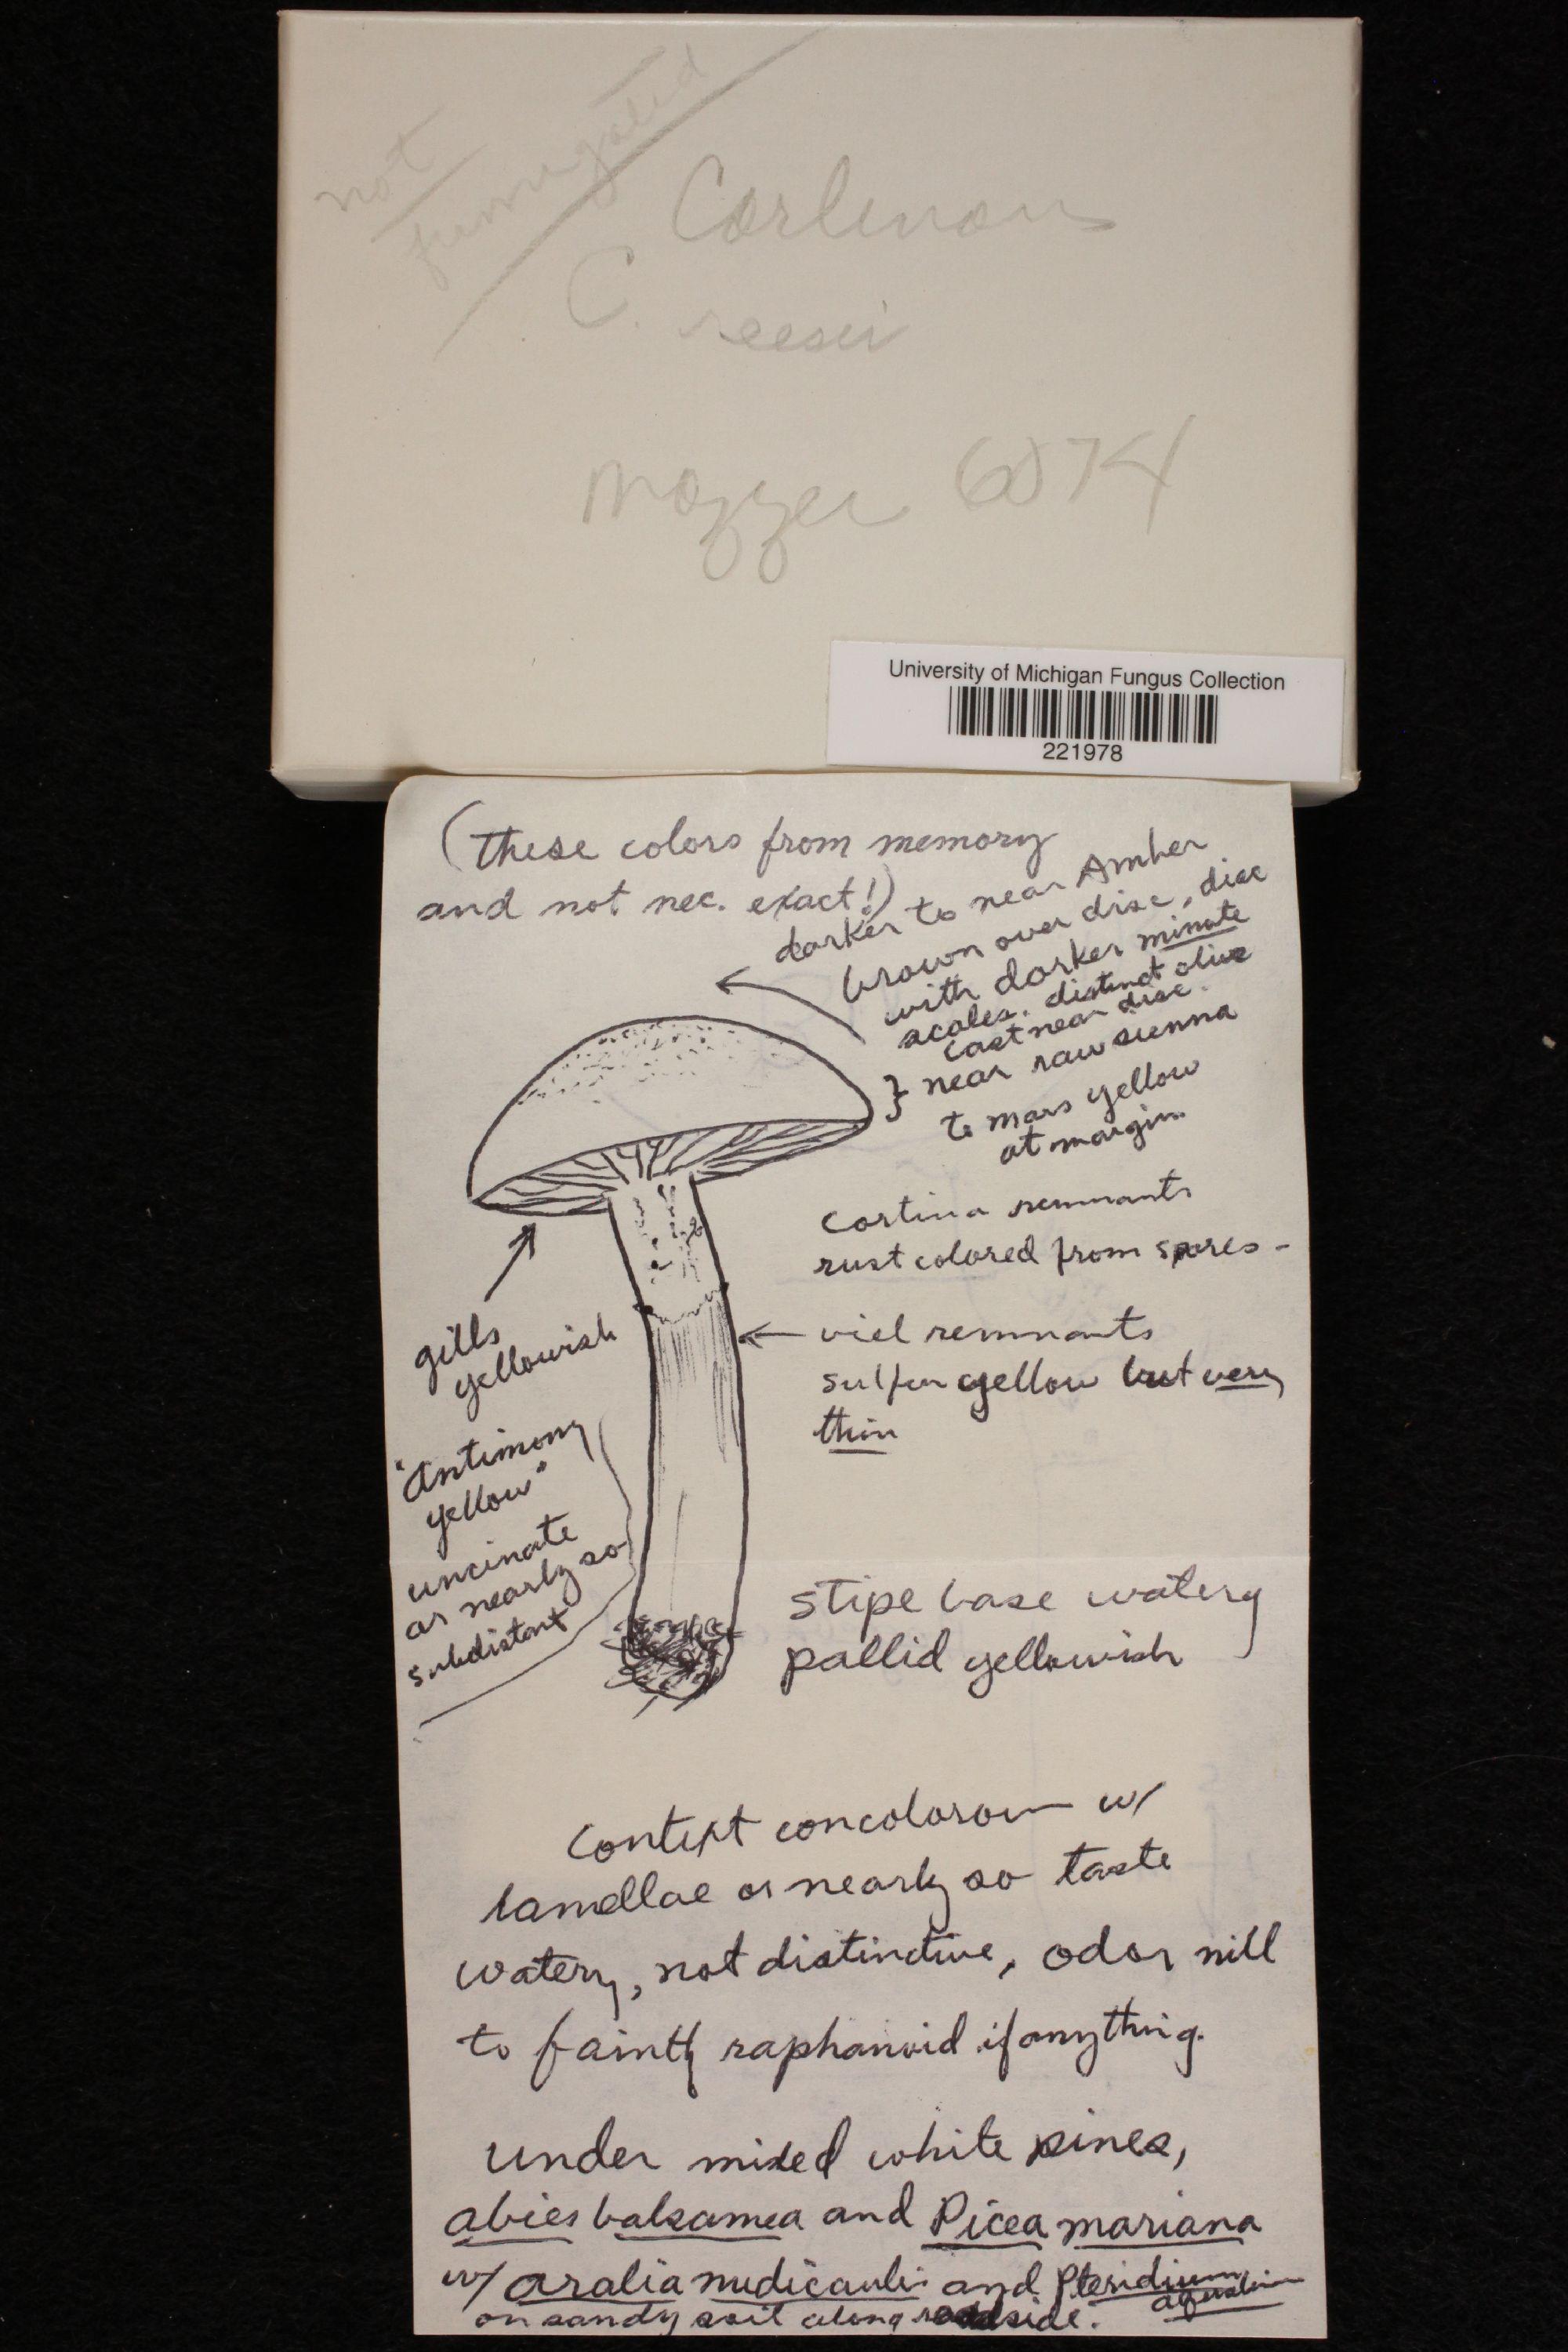 not
fumigated
Cortinarius
C. reesei
Mazzer 6074
University of Michigan Fungus Collection
221978
(these colors from memory
and not nec. exact!)
darker to near Amber
brown over disc, disc
with darker minute
scales. distinct olive
cast near disc.
} near raw sienna
to mars yellow
at margin.
cortina remnants
rust colored from spores -
gills
yellowish
viel remnants
sulfur yellow but very
thin
"Antimony
yellow"
uncinate
or nearly so
subdistant
stipe base watery
pallid yellowish
Context concolorous w/
lamellae or nearly so taste
watery, not distinctive, odor nill
to faintly raphanoid if anything.
under mixed white pines,
abies balsamea and Picea mariana
w/ aralia nudicaulis and Pteridium
aquilinum
on sandy soil along roadside.